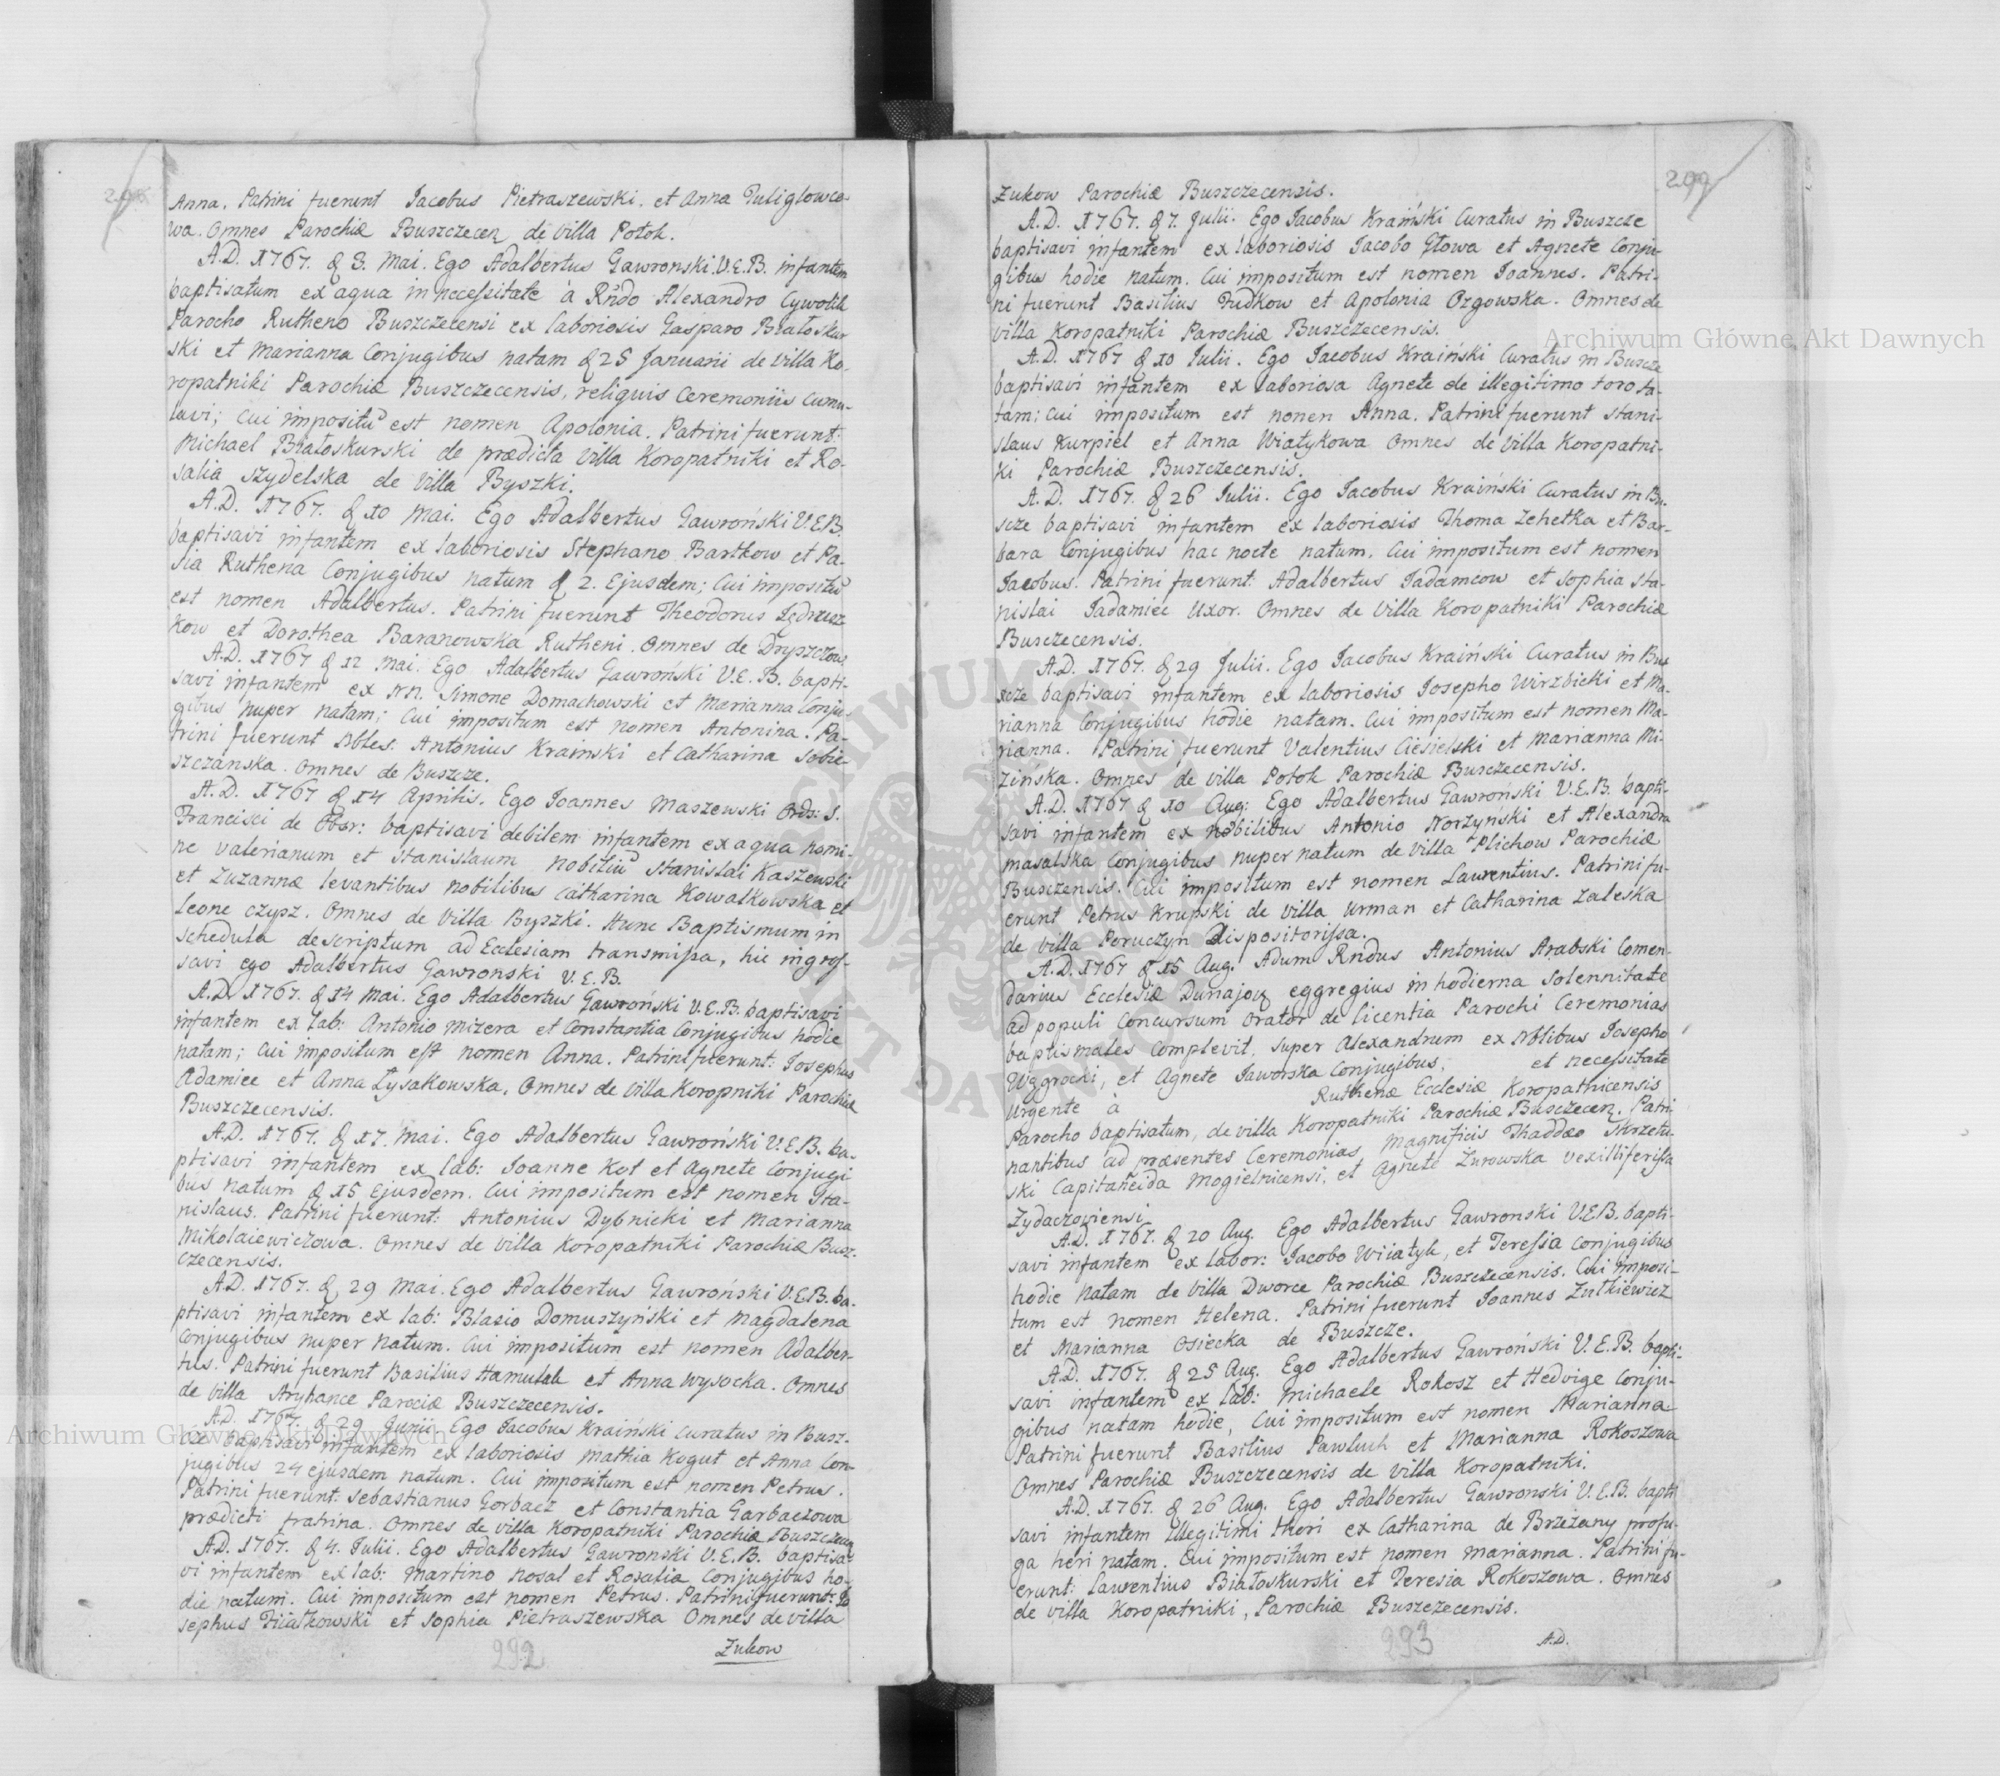 Anna. Patrini fuerunt Jacobus Pietraszewski, et Anna Puliglowco-
wa. Omnes Parochiæ Buszczecen de Villa Potok.
A.D. 1767. d 3. Mai. Ego Adalbertus Gawronski V.E.B. infantem
baptisatum ex aqua in necessitate à Rndo Alexandro Cywolik
Parocho Rutheno Buszczecensi ex laboriosis Gasparo Białoskur
ski et Marianna Conjugibus natam d 25 Januarii de Villa Ko-
ropatniki Parochiæ Buszczecensis, reliquis Ceremoniis cumu-
lavi; Cui impositū est nomen Apolonia. Patrini fuerunt:
Michael Białoskurski de prædicta Villa Koropatniki et Ro-
salia Szydelska de Villa Byszki.
A.D. 1767. d 10 Mai. Ego Adalbertus Gawroński V.E.B.
baptisavi infantem ex laboriosis Stephano Bartkow et Pa-
sia Ruthena Conjugibus natum d 2. Ejusdem; Cui impositū
est nomen Adalbertus. Patrini fuerunt Theodorus Jędrusz
kow et Dorothea Baranowska Rutheni. Omnes de Dryszczow.
A.D. 1767 d 12 Mai. Ego Adalbertus Gawroński V.E.B. bapti-
savi infantem ex NN. Simone Domachowski et Marianna Conju-
gibus nuper natam; Cui impositum est nomen Antonina. Pa-
trini fuerunt Nbles. Antonius Kraiński et Catharina Sobie-
szczanska. Omnes de Buszcze.
A.D. 1767 d 14 Aprilis. Ego Joannes Maszewski Ords: S.
Francisci de Obser: baptisavi debilem infantem ex aqua nomi-
ne Valerianum et Stanislaum nobiliū Stanislai Kaszewski
et Zuzannæ levantibus nobilibus Catharina Kowalkowska et
Leone Czysz. Omnes de Villa Byszki. Hunc Baptismum in
schedula descriptum ad Ecclesiam transmissa, hic ingros-
savi ego Adalbertus Gawronski V.E.B.
A.D. 1767. d 14 Mai. Ego Adalbertus Gawroński V.E.B. baptisavi
infantem ex lab: Antonio Mizera et Constantia Conjugibus hodie
natam; Cui impositum est nomen Anna. Patrini fuerunt: Josephus
Adamiec et Anna Łysakowska. Omnes de Villa Koropniki Parochiæ
Buszczecensis.
A.D. 1767. d 17. Mai. Ego Adalbertus Gawroński V.E.B. ba-
ptisavi infantem ex lab: Joanne Kot et Agnete Conjugi
bus natum d 15 Ejusdem. Cui impositum est nomen Sta-
nislaus. Patrini fuerunt: Antonius Dybnicki et Marianna
Mikolaiewiczowa. Omnes de Villa Koropatniki Parochiæ Busz-
czecensis.
A.D. 1767. d 29 Mai. Ego Adalbertus Gawroński V.E.B. ba-
ptisavi infantem ex lab: Blasio Domuszyński et Magdalena
Conjugibus nuper natum. Cui impositum est nomen Adalber-
tus. Patrini fuerunt Basilius Hamulak et Anna Wysocka. Omnes
de Villa Aryhance Parociæ Buszczecensis.
A.D. 1767. d 29 Junii. Ego Jacobus Kraiński curatus in Busz-
cze baptisavi infantem ex laboriosis Mathia Kogut et Anna Con-
jugibus 24 ejusdem natum. Cui impositum est nomen Petrus.
Patrini fuerunt: Sebastianus Gorbacz et Constantia Garbaczowa
prædicti fratrina. Omnes de villa Koropatniki Parochiæ Buszczecen
A.D. 1767. d 4. Julii. Ego Adalbertus Gawronski V.E.B. baptisa-
vi infantem ex lab: Martino Nosal et Rosalia Conjugibus ho-
die natum. Cui impositum est nomen Petrus. Patrini fuerunt: Jo
sephus Fiiałkowski et Sophia Pietraszewska Omnes de villa
Zukow
292
299
Zukow Parochiæ Buszczecensis.
A.D. 1767. d 7. Julii. Ego Jacobus Kraiński Curatus in Buszcze
baptisavi infantem ex laboriosis Jacobo Głowa et Agnete Conju-
gibus hodie natum. Cui impositum est nomen Joannes. Patri-
ni fuerunt Basilius Dudkow et Apolonia Ozgowska. Omnes de
villa Koropatniki Parochiæ Buszczecensis.
A.D. 1767 d 10 Julii. Ego Jacobus Kraiński Curatus in Buscze
baptisavi infantem ex laboriosa Agnete de illegitimo toro na-
tam; cui impositum est nonen Anna. Patrini fuerunt Stani-
slaus Kurpiel et Anna Wiatykowa Omnes de Villa Koropatni-
ki Parochiæ Buszczecensis.
A.D. 1767. d 26 Julii. Ego Jacobus Kraiński Curatus in Bu-
scze baptisavi infantem ex laboriosis Thoma Zehetka et Bar-
bara Conjugibus hac nocte natum. Cui impositum est nomen
Jacobus. Patrini fuerunt: Adalbertus Jadamcow et Sophia Sta-
nislai Jadamiec Uxor. Omnes de Villa Koropatniki Parochiæ
Busczecensis.
A.D. 1767. d 29 Julii. Ego Jacobus Kraiński Curatus in Bus
scze baptisavi infantem ex laboriosis Josepho Wirzbicki et Ma-
rianna Conjugibus hodie natam. Cui impositum est nomen Ma-
rianna. Patrini fuerunt Valentius Ciesielski et Marianna Mi-
zińska. Omnes de villa Potok Parochiæ Busczecensis.
A.D. 1767 d 10 Aug: Ego Adalbertus Gawroński V.E.B. bapti-
savi infantem ex nobilibus Antonio Norzyński et Alexandra
Masalska Conjugibus nuper natum de Villa Plichow Parochiæ
Busczensis. Cui impositum est nomen Laurentius. Patrini fu-
erunt Petrus Krupski de villa Urman et Catharina Zaleska
de villa Poruczyn Dispositorissa.
A.D. 1767 d 15 Aug. Adum Rndus Antonius Arabski Comen-
darius Ecclesiæ Dunajow eggregius in hodierna solennitate
ad populi Concursum Orator de licentia Parochi Ceremonias
baptismales Complevit, super Alexandrum ex Nblibus Josepho
Węgrocki, et Agnete Jaworska Conjugibus, et necessitate
urgente à Ruthenæ Ecclesiæ Koropatnicensis
Parocho baptisatum, de villa Koropatniki Parochiæ Busczecen. Patri
nantibus ad præsentes Ceremonias, Magnificis Thaddæo Skrzetu-
ski Capitaneida Mogielnicensi, et Agnete Zurowska Vexilliferissa
Zydaczowiensi
A.D. 1767. d 20 Aug. Ego Adalbertus Gawronski V.E.B. bapti-
savi infantem ex labor: Jacobo Wiiatyk, et Teressia Conjugibus
hodie natam de Villa Dworce Parochiæ Buszczecensis. Cui imposi-
tum est nomen Helena. Patrini fuerunt Joannes Zulkiewicz
et Marianna Osiecka de Buszcze.
A.D. 1767. d 25 Aug. Ego Adalbertus Gawroński V.E.B. bapti-
savi infantem ex lab: Michaele Rokosz et Hedvige Conju-
gibus natam hodie, Cui impositum est nomen Marianna
Patrini fuerunt Basilius Pawluch et Marianna Rokoszowa
Omnes Parochiæ Buszczecensis de villa Koropatniki.
A.D. 1767. d 26 Aug. Ego Adalbertus Gawronski V.E.B. bapti
savi infantem Illegitimi thori ex Catharina de Brzeżany profu-
ga heri natam. Cui impositum est nomen Marianna. Patrini fu-
erunt: Laurentius Białoskurski et Teresia Rokoszowa. Omnes
de villa Koropatniki, Parochiæ Buszczecensis.
A.D.
293
Archiwum Główne Akt Dawnych
Archiwum Główne Akt Dawnych
ARCHIWUM GŁÓWNE AKT DAWNYCH